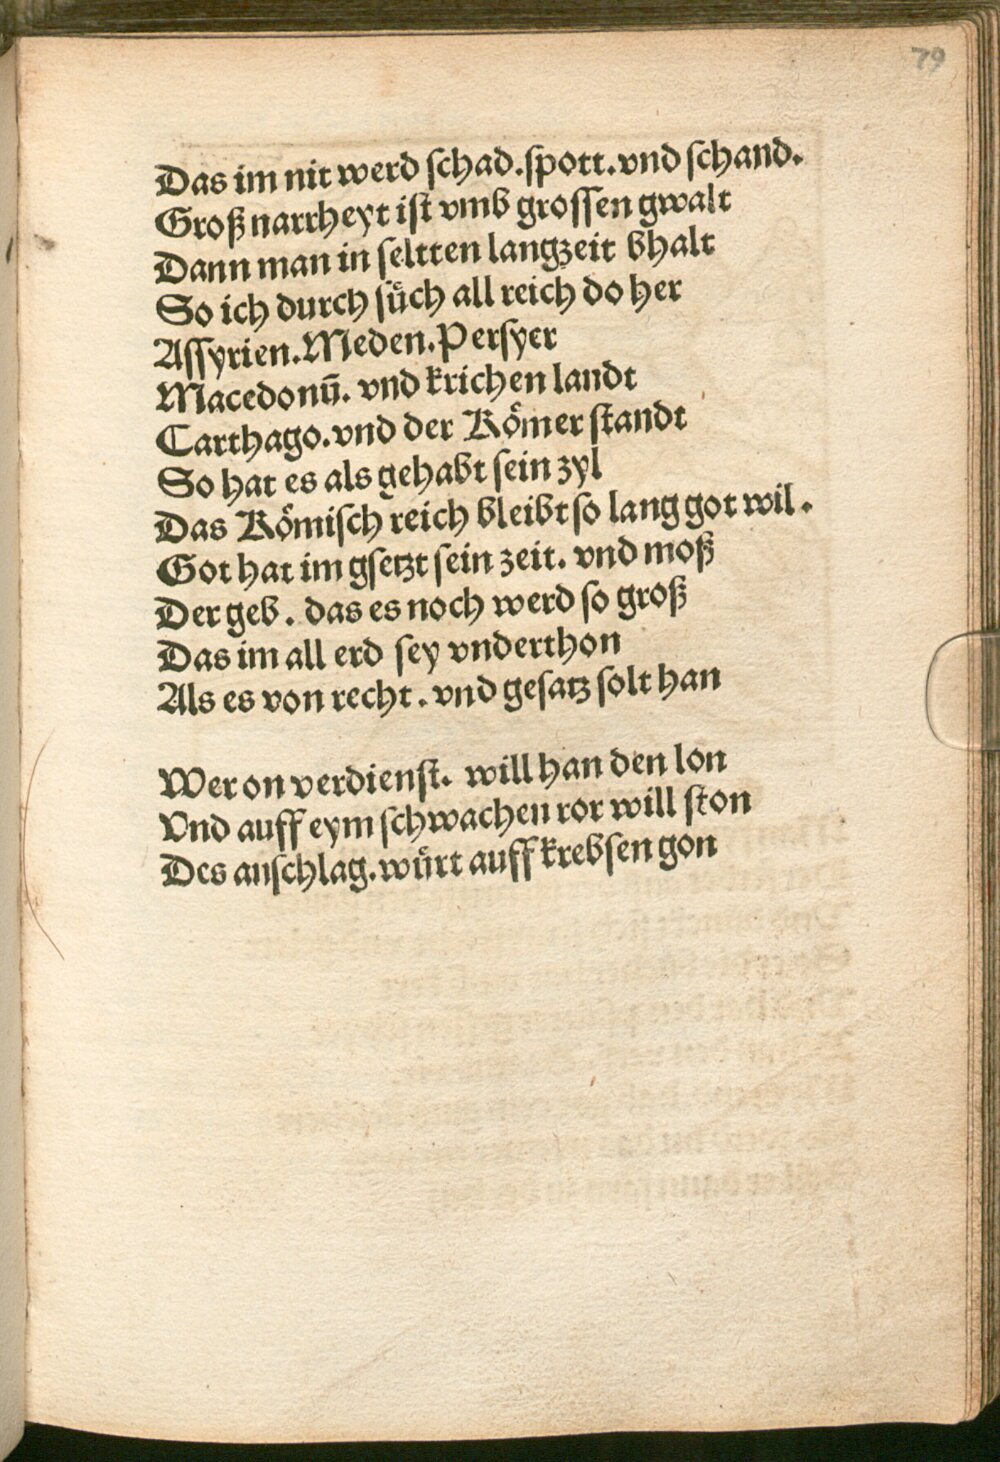 79
Das im nit werd schad. spott. vnd schand.
Groß narrheyt ist vmb grossen gwalt
Dann man in seltten langzeit bhalt
So ich durch sůch all reich do her
Assyrien. Meden. Persyer
Macedonū. vnd krichen landt
Carthago. vnd der Rőmer standt
So hat es als gehabt sein zyl
Das Rőmisch reich bleibt so lang got wil.
Got hat im gsetzt sein zeit. vnd moß
Der geb. das es noch werd so groß
Das im all erd sey vnderthon
Als es von recht. vnd gesatz solt han
Wer on verdienst. will han den lon
Vnd auff eym schwachen ror will ston
Des anschlag. würt auff krebsen gon